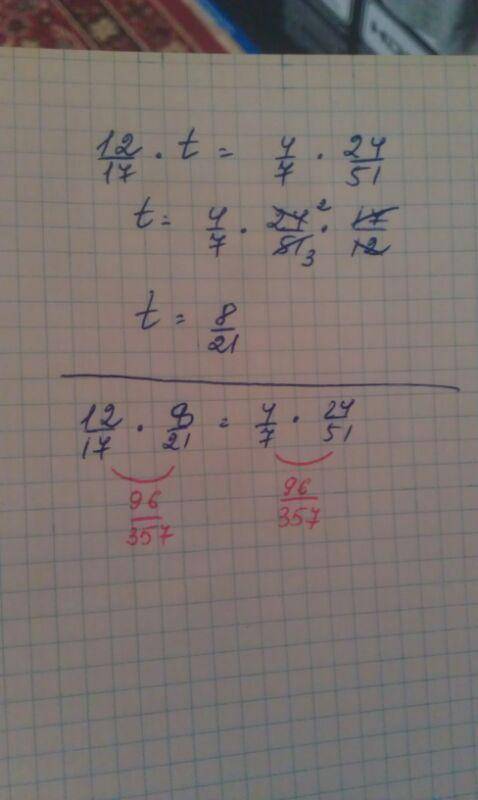 12/17 · t = 4/7 · 24/51
t = 4/7 · 24²/51₃ · 17/12
t = 8/21
12/17 · 8/21 = 4/7 · 24/51
96/357 96/357